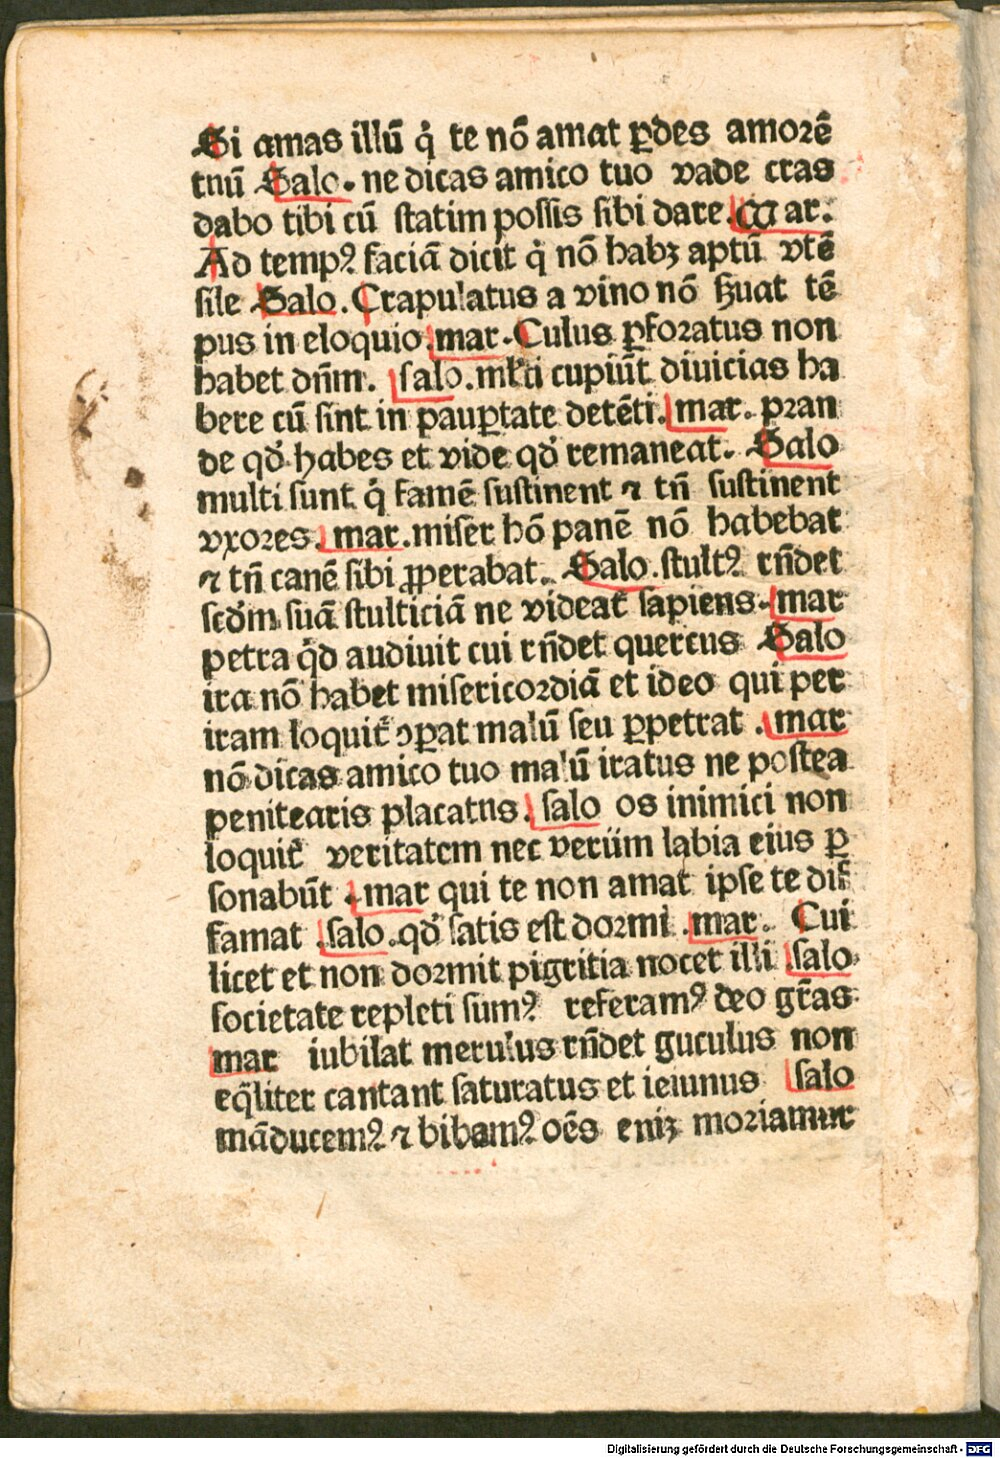 Si amas illū q̇ te nō amat ꝑdes amorē
tuū Salo. ne dicas amico tuo vade cras
dabo tibi cū statim possis sibi dare. Mar.
Ad temp⁹ faciā dicit q̇ nō habꝫ aptū vtē
sile Salo. Crapulatus a vino nō ẜuat tē
pus in eloquio. mar. Culus ꝑforatus non
habet dn̄m. salo. ml̄ti cupiūt diuicias ha
bere cū sint in pauꝑtate detēti. mar. pran
de qd̓ habes et vide qd̓ remaneat. Salo
multi sunt q̇ famē sustinent ⁊ tn̄ sustinent
vxores. mar. miser hō panē nō habebat
⁊ tn̄ canē sibi ꝓperabat. Salo. stult⁹ rn̄det
scd̓m suā stulticiā ne videat̄ sapiens. mar
petra q̇d audiuit cui rn̄det quercus Salo
ira nō habet misericordiā et ideo qui per
iram loquit̄ ɔꝑat malū seu ꝑpetrat. mar
nō dicas amico tuo malū iratus ne postea
penitearis placatus. salo os inimici non
loquit̄ veritatem nec verum labia eius ꝑ
sonabūt. mar qui te non amat ipse te dif
famat. salo. qd̓ satis est dormi. mar. Cui
licet et non dormit pigritia nocet illi. salo.
societate repleti sum⁹ referam⁹ deo gr̄as
mar iubilat merulus rn̄det guculus non
eq̄liter cantant saturatus et ieiunus salo
māducem⁹ ⁊ bibam⁹ oēs eniꝫ moriamur
Digitalisierung gefördert durch die Deutsche Forschungsgemeinschaft - DFG